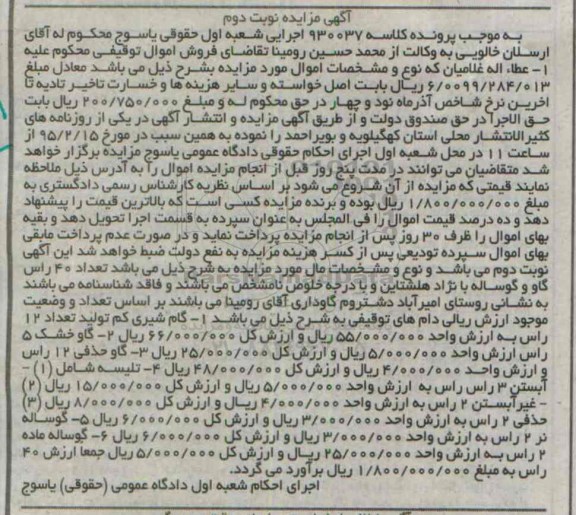 آگهی مزایده نوبت دوم
به موجب پرونده کلاسه ۹۳۰۰۳۷ اجرایی شعبه اول حقوقی یاسوج محکوم له آقای
ارسلان خالویی به وکالت از محمد حسین رومینا تقاضای فروش اموال توقیفی محکوم علیه
۱- عطاء اله غلامیان که نوع و مشخصات اموال مورد مزایده بشرح ذیل می باشد معادل مبلغ
۶/۰۰۹۹/۲۸۴/۰۱۳ ریال بابت اصل خواسته و سایر هزینه ها و خسارت تاخیر تادیه تا
اخرین نرخ شاخص آذرماه نود و چهار در حق محکوم له و مبلغ ۲۰۰/۷۵۰/۰۰۰ ریال بابت
حق الاجرا در حق صندوق دولت و از طریق آگهی مزایده و انتشار آگهی در یکی از روزنامه های
کثیرالانتشار محلی استان کهگیلویه و بویراحمد را نموده به همین سبب در مورخ ۹۵/۲/۱۵ از
ساعت ۱۱ در محل شعبه اول اجرای احکام حقوقی دادگاه عمومی یاسوج مزایده برگزار خواهد
شد متقاضیان می توانند در مدت پنج روز قبل از انجام مزایده اموال را به آدرس ذیل ملاحظه
نمایند قیمتی که مزایده از آن شروع می شود بر اساس نظریه کارشناس رسمی دادگستری به
مبلغ ۱/۸۰۰/۰۰۰/۰۰۰ ریال بوده و برنده مزایده کسی است که بالاترین قیمت را پیشنهاد
دهد و ده درصد قیمت اموال را فی المجلس به عنوان سپرده به قسمت اجرا تحویل دهد و بقیه
بهای اموال را ظرف ۳۰ روز پس از انجام مزایده پرداخت نماید و در صورت عدم پرداخت مابقی
بهای اموال سپرده تودیعی پس از کسر هزینه مزایده به نفع دولت ضبط خواهد شد این آگهی
نوبت دوم می باشد و نوع و مشخصات مال مورد مزایده به شرح ذیل می باشد تعداد ۴۰ راس
گاو و گوساله با نژاد هلشتاین و با درجه خلوص نامشخص می باشند و فاقد شناسنامه می باشند
به نشانی روستای امیرآباد دشتروم گاوداری آقای رومینا می باشند بر اساس تعداد و وضعیت
موجود ارزش ریالی دام های توقیفی به شرح ذیل می باشد ۱- گام شیری کم تولید تعداد ۱۲
راس به ارزش واحد ۵۵/۰۰۰/۰۰۰ ریال و ارزش کل ۶۶/۰۰۰/۰۰۰ ریال ۲- گاو خشک ۵
راس ارزش واحد ۵/۰۰۰/۰۰۰ ریال و ارزش کل ۲۵/۰۰۰/۰۰۰ ریال ۳- گاو حذفی ۱۲ راس
و ارزش واحد ۴/۰۰۰/۰۰۰ ریال و ارزش کل ۴۸/۰۰۰/۰۰۰ ریال ۴- تلیسه شامل (۱) -
آبستن ۳ راس راس به ارزش واحد ۵/۰۰۰/۰۰۰ ریال و ارزش کل ۱۵/۰۰۰/۰۰۰ ریال (۲)
- غیرآبستن ۲ راس به ارزش واحد ۴/۰۰۰/۰۰۰ ریال و ارزش کل ۸/۰۰۰/۰۰۰ ریال (۳)
حذفی ۲ راس به ارزش واحد ۳/۰۰۰/۰۰۰ ریال و ارزش کل ۶/۰۰۰/۰۰۰ ریال ۵- گوساله
نر ۲ راس به ارزش واحد ۳/۰۰۰/۰۰۰ ریال و ارزش کل ۶/۰۰۰/۰۰۰ ریال ۶- گوساله ماده
۲ راس به ارزش واحد ۲۵/۰۰۰/۰۰۰ ریال و ارزش کل ۵/۰۰۰/۰۰۰ ریال جمعا ارزش ۴۰
راس به مبلغ ۱/۸۰۰/۰۰۰/۰۰۰ ریال برآورد می گردد.
اجرای احکام شعبه اول دادگاه عمومی (حقوقی) یاسوج